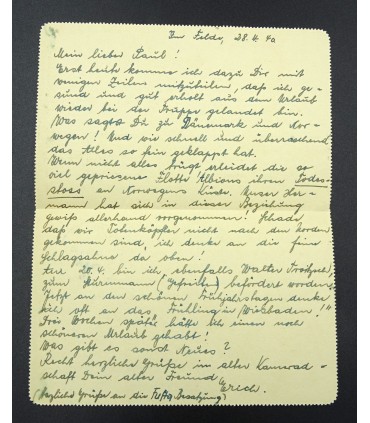 Im Felde, 28.4.40
Mein lieber Paul!
Erst heute komme ich dazu Dir mit
wenigen Zeilen mitzuteilen, daß ich ge-
sund und gut erholt aus dem Urlaub
wieder bei der Truppe gelandet bin.
Was sagst Du zu Dänemark und Nor-
wegen! Und wie schnell und überraschend
das Alles so fein geklappt hat.
Wenn nicht alles trügt, erleidet die so
viel gepriesene Flotte Albions ihren Todes-
stoss an Norwegens Küste. Unser Her-
mann hat sich in dieser Beziehung
gewiß allerhand vorgenommen! Schade,
daß wir Totenköpfler nicht nach dem Norden
gekommen sind, ich denke an die feine
Schlagsahne da oben!
20.4. bin ich, ebenfalls Walter
zum Sturmmann (Gefreiter) befördert worden.
Jetzt an den schönen Frühjahrstagen denke
ich oft an das "Frühling in Wiesbaden!"
Drei Wochen später hätte ich einen noch
schöneren Urlaub gehabt!
Was gibt es sonst Neues?
Recht herzliche Grüße in alter Kamerad-
schaft Dein alter Freund Erich.
(Herzliche Grüße an die Besatzung)